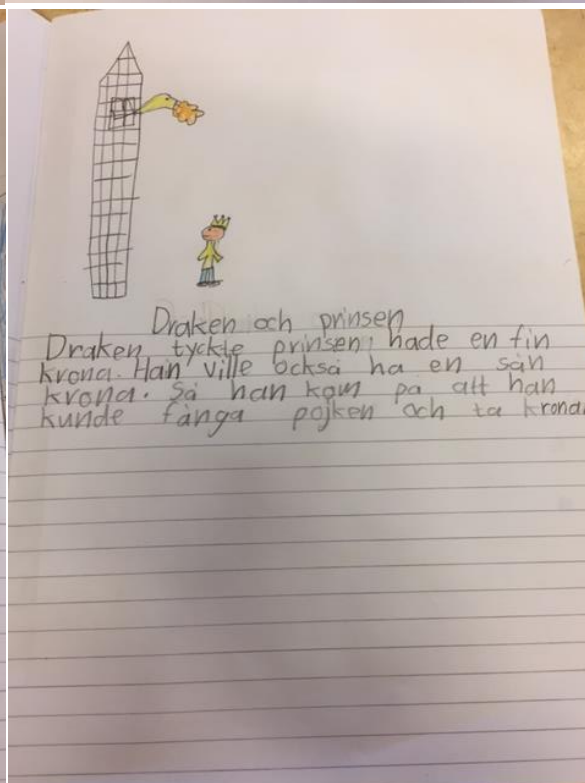 Draken och prinsen
Draken tyckte prinsen hade en fin
krona. Han ville också ha en sån
krona. Så han kom på att han
kunde fånga pojken och ta krona